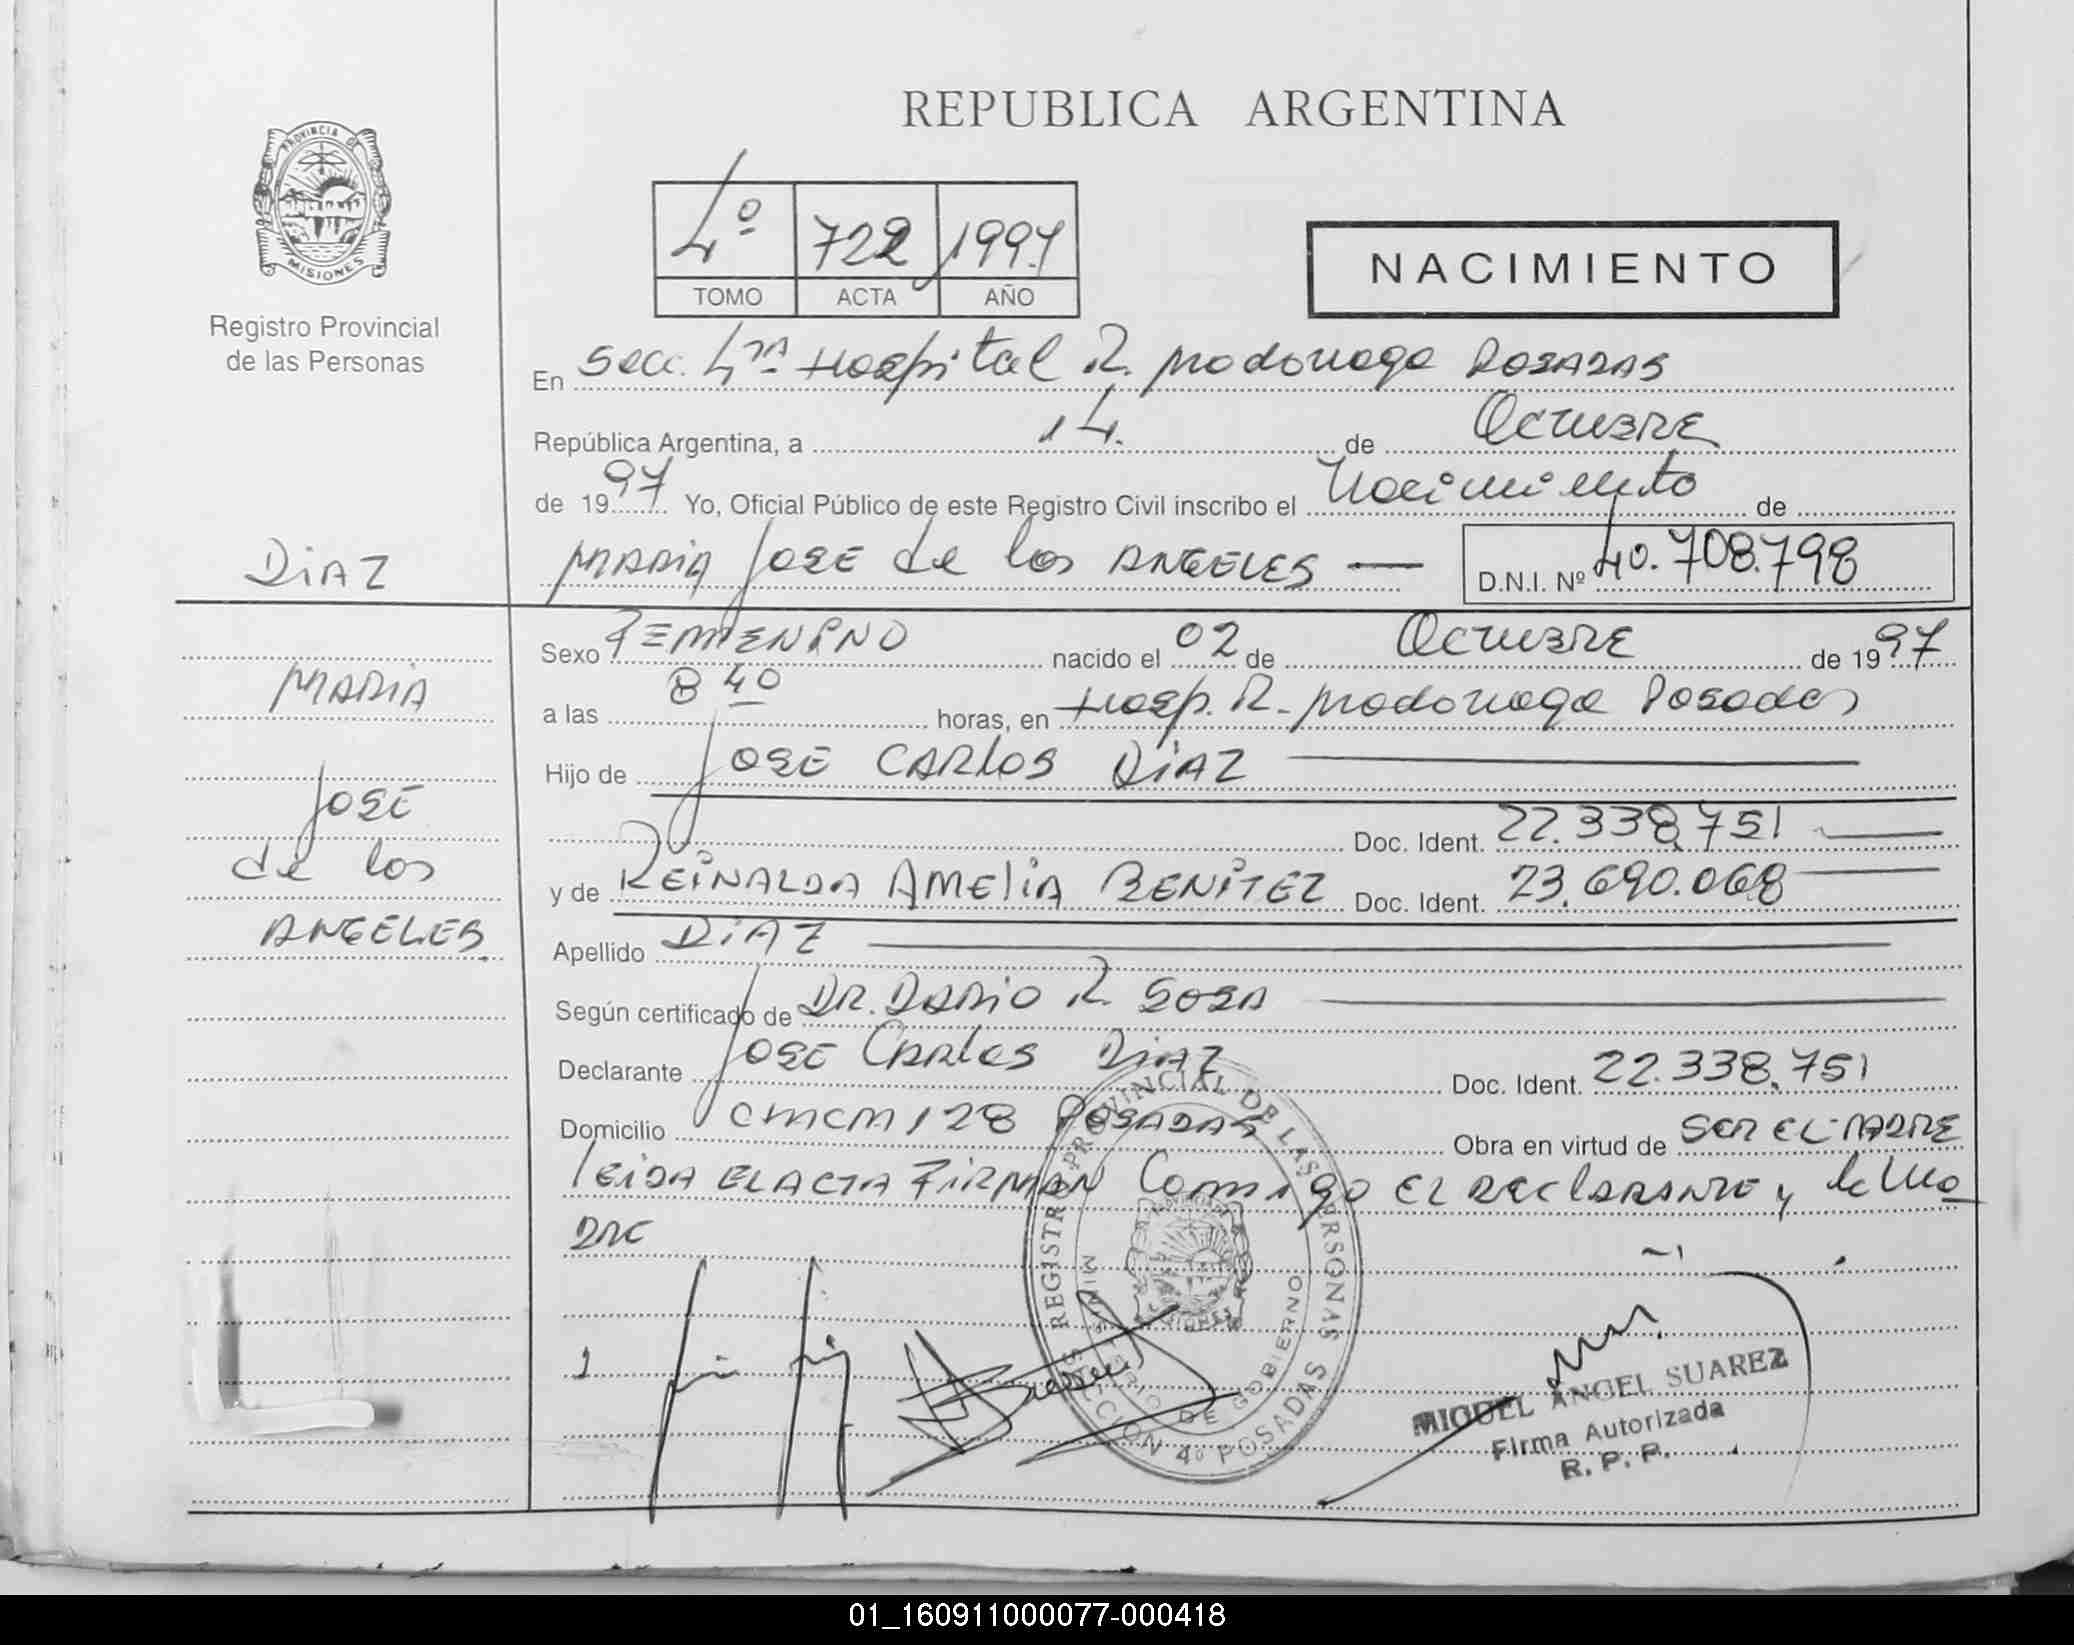 REPUBLICA ARGENTINA
PROVINCIA DE
MISIONES
Registro Provincial
de las Personas
4º 722 1997
TOMO ACTA AÑO
NACIMIENTO
En Secc. 4ta Hospital R. Madariaga POSADAS
República Argentina, a 14. de OCTUBRE
de 1997 Yo, Oficial Público de este Registro Civil inscribo el Nacimiento de
DiAZ
MARIA JOSE de los ANGELES — D.N.I. Nº 40.708.798
MARIA
JOSE
de los
ANGELES.
Sexo FEMENINO nacido el 02 de OCTUBRE de 1997
a las 8 40 horas, en Hosp. R. Madariaga Posadas
Hijo de JOSE CARLOS DiAZ
Doc. Ident. 22.338.751
y de REiNALDA AMELiA BENiTEZ Doc. Ident. 23.690.068
Apellido DiAZ
Según certificado de DR. DARIO R. SOSA
Declarante JOSE CARLOS DiAZ Doc. Ident. 22.338.751
Domicilio CMCM 128 POSADAS Obra en virtud de SER EL PADRE
LEIDA EL ACTA FIRMAN Conmigo EL DECLARANTE y la Ma
DRE
REGISTRO PROVINCIAL DE LAS PERSONAS
MINISTERIO DE GOBIERNO
SECCION 4º POSADAS
MIGUEL ANGEL SUAREZ
Firma Autorizada
R. P. P.
01_160911000077-000418